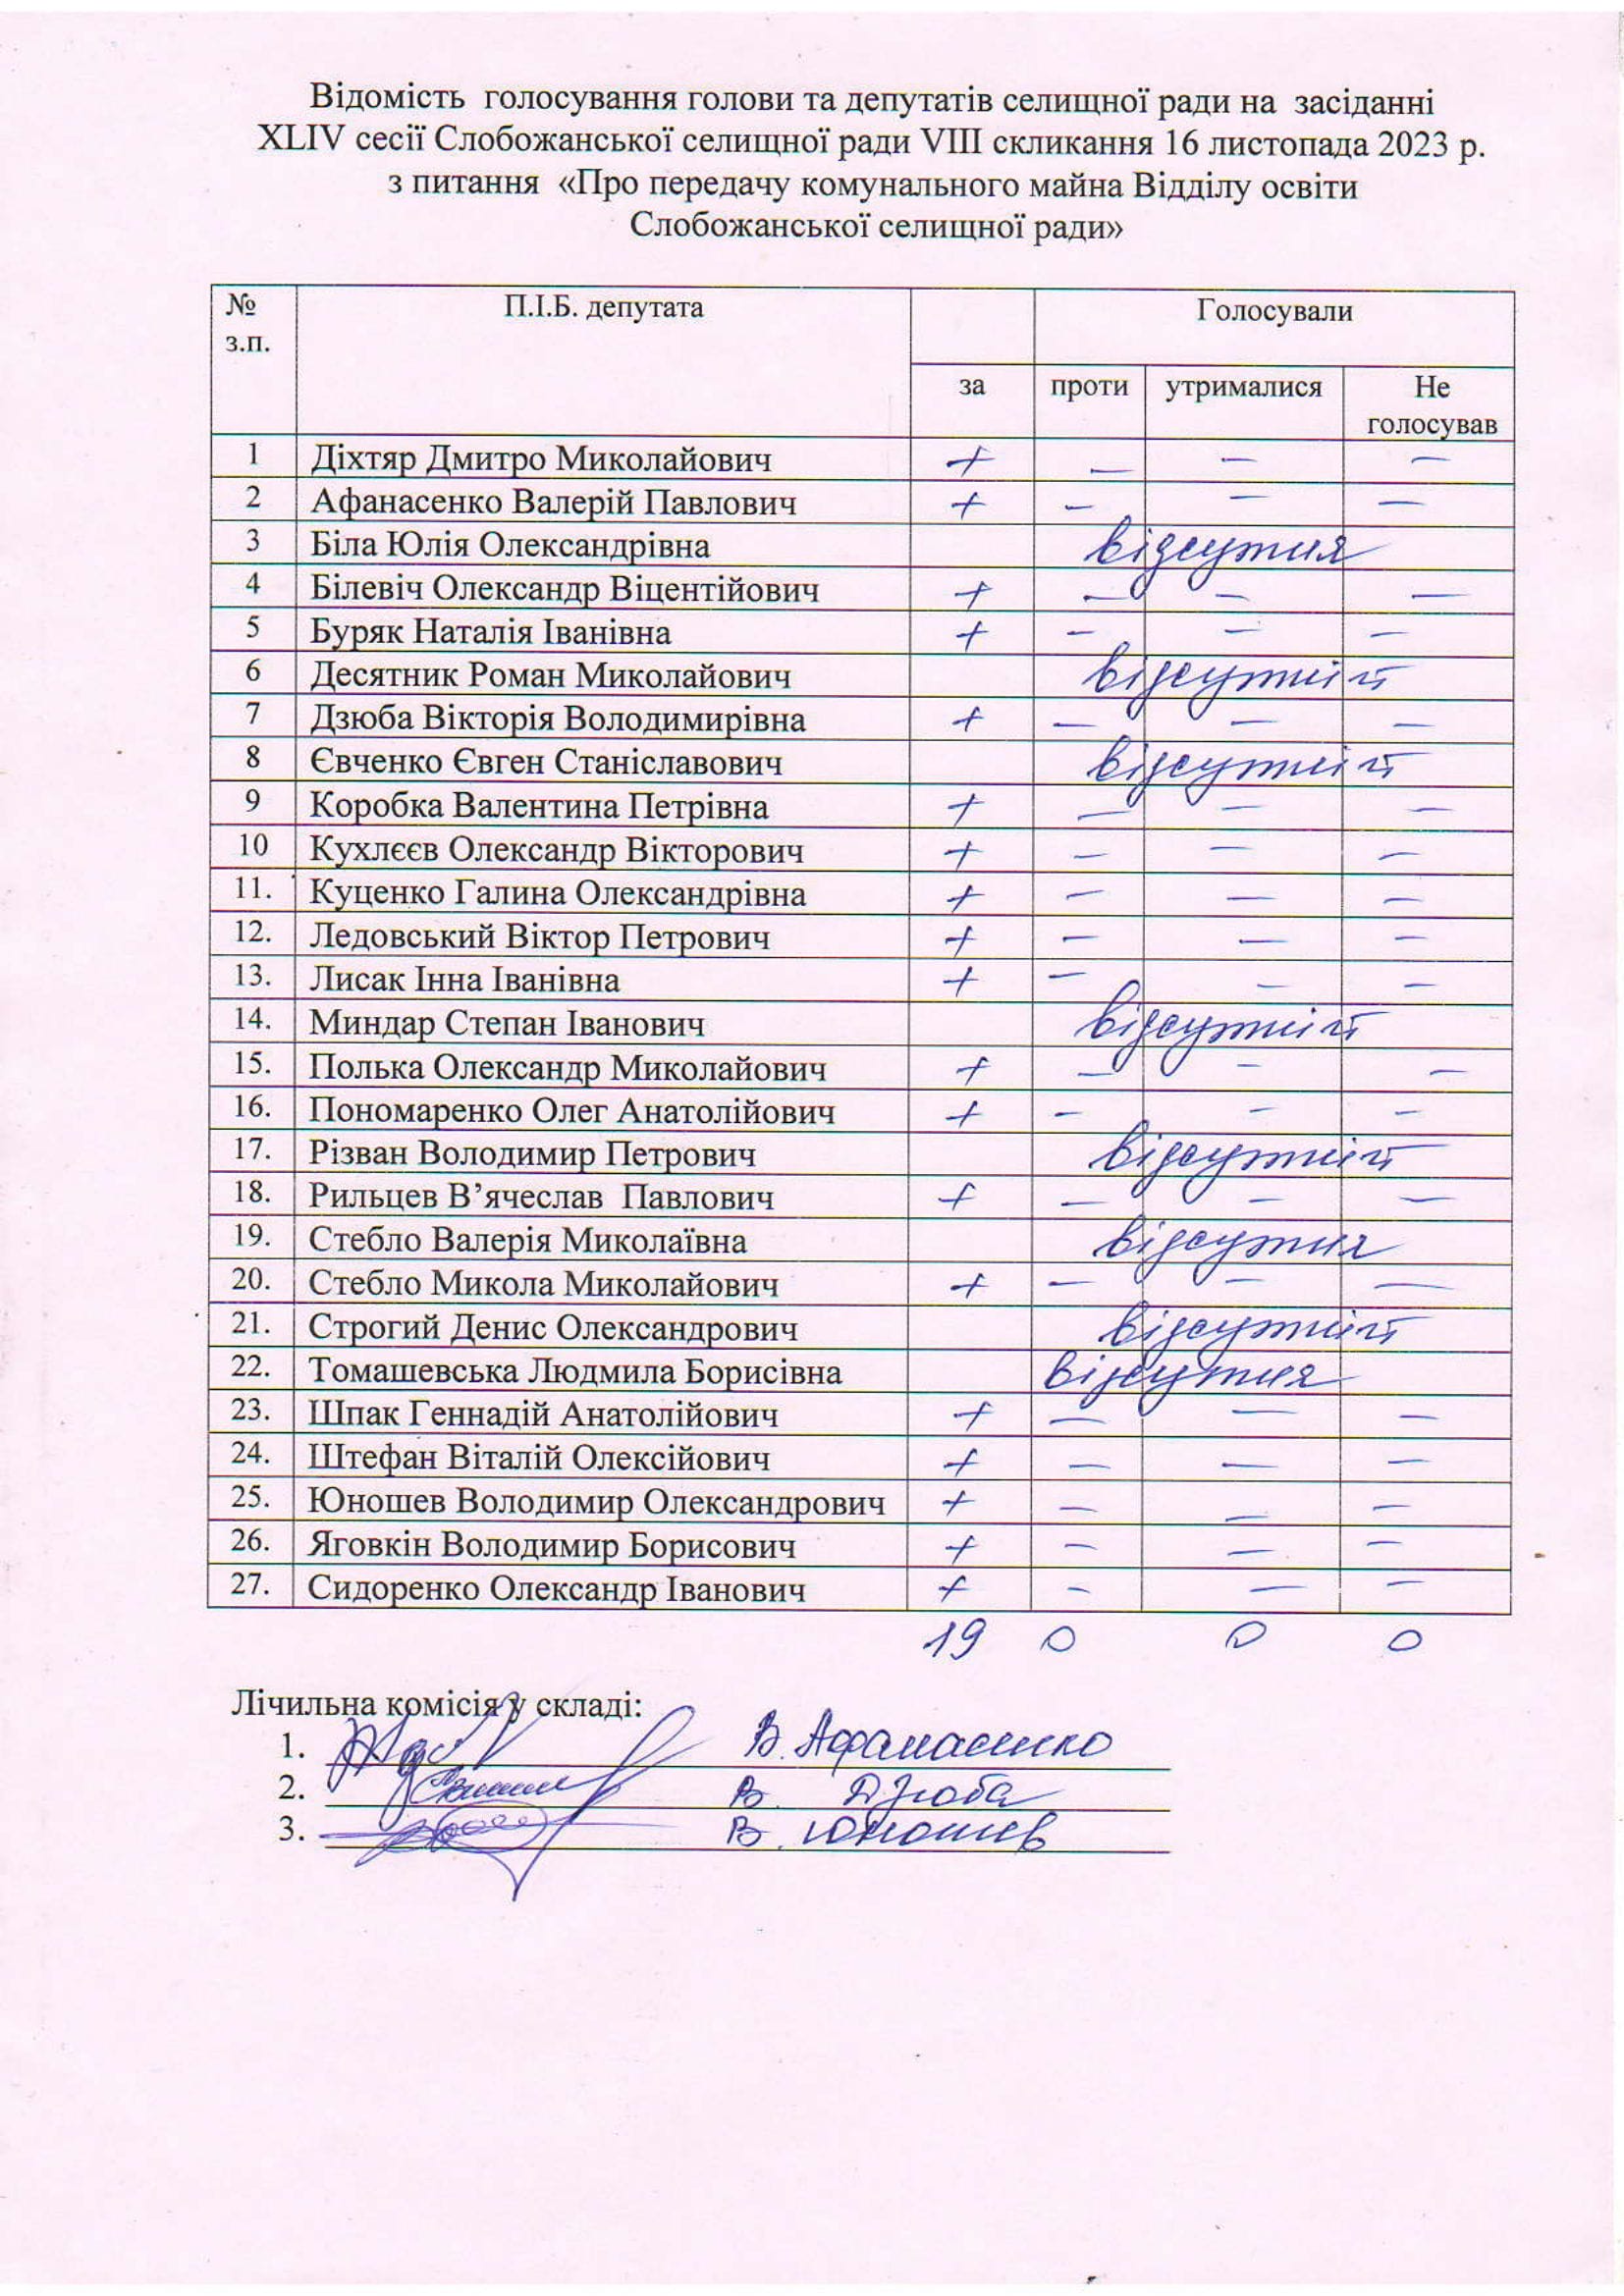 Відомість голосування голови та депутатів селищної ради на засіданні
XLIV сесії Слобожанської селищної ради VIII скликання 16 листопада 2023 р.
з питання «Про передачу комунального майна Відділу освіти
Слобожанської селищної ради»
№ з.п. П.І.Б. депутата Голосували
за проти утрималися Не голосував
1 Діхтяр Дмитро Миколайович + — — —
2 Афанасенко Валерій Павлович + — — —
3 Біла Юлія Олександрівна відсутня
4 Білевіч Олександр Віцентійович + — — —
5 Буряк Наталія Іванівна + — — —
6 Десятник Роман Миколайович відсутній
7 Дзюба Вікторія Володимирівна + — — —
8 Євченко Євген Станіславович відсутній
9 Коробка Валентина Петрівна + — — —
10 Кухлєєв Олександр Вікторович + — — —
11. Куценко Галина Олександрівна + — — —
12. Ледовський Віктор Петрович + — — —
13. Лисак Інна Іванівна + — — —
14. Миндар Степан Іванович відсутній
15. Полька Олександр Миколайович + — — —
16. Пономаренко Олег Анатолійович + — — —
17. Різван Володимир Петрович відсутній
18. Рильцев В’ячеслав Павлович + — — —
19. Стебло Валерія Миколаївна відсутня
20. Стебло Микола Миколайович + — — —
21. Строгий Денис Олександрович відсутній
22. Томашевська Людмила Борисівна відсутня
23. Шпак Геннадій Анатолійович + — — —
24. Штефан Віталій Олексійович + — — —
25. Юношев Володимир Олександрович + — — —
26. Яговкін Володимир Борисович + — — —
27. Сидоренко Олександр Іванович + — — —
19 0 0 0
Лічильна комісія у складі:
1. В. Афанасенко
2. В. Дзюба
3. В. Юношев